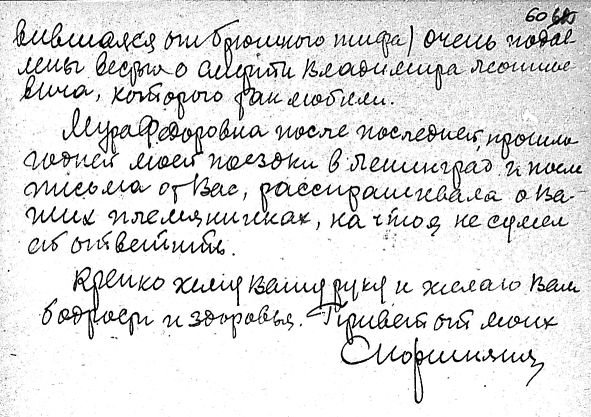 вившаяся от брюшного тифа) очень подав-
лены вестью о смерти Владимира Леонтье
вича, которого так любили.
Мура Федоровна после последней, прошло
годней моей поездки в Ленинград и после
письма от Вас, расспрашивала о Ва-
ших племянниках, на что я не сумел
ей ответить.
Крепко жму Вашу руку и желаю Вам
бодрости и здоровья. Привет от моих